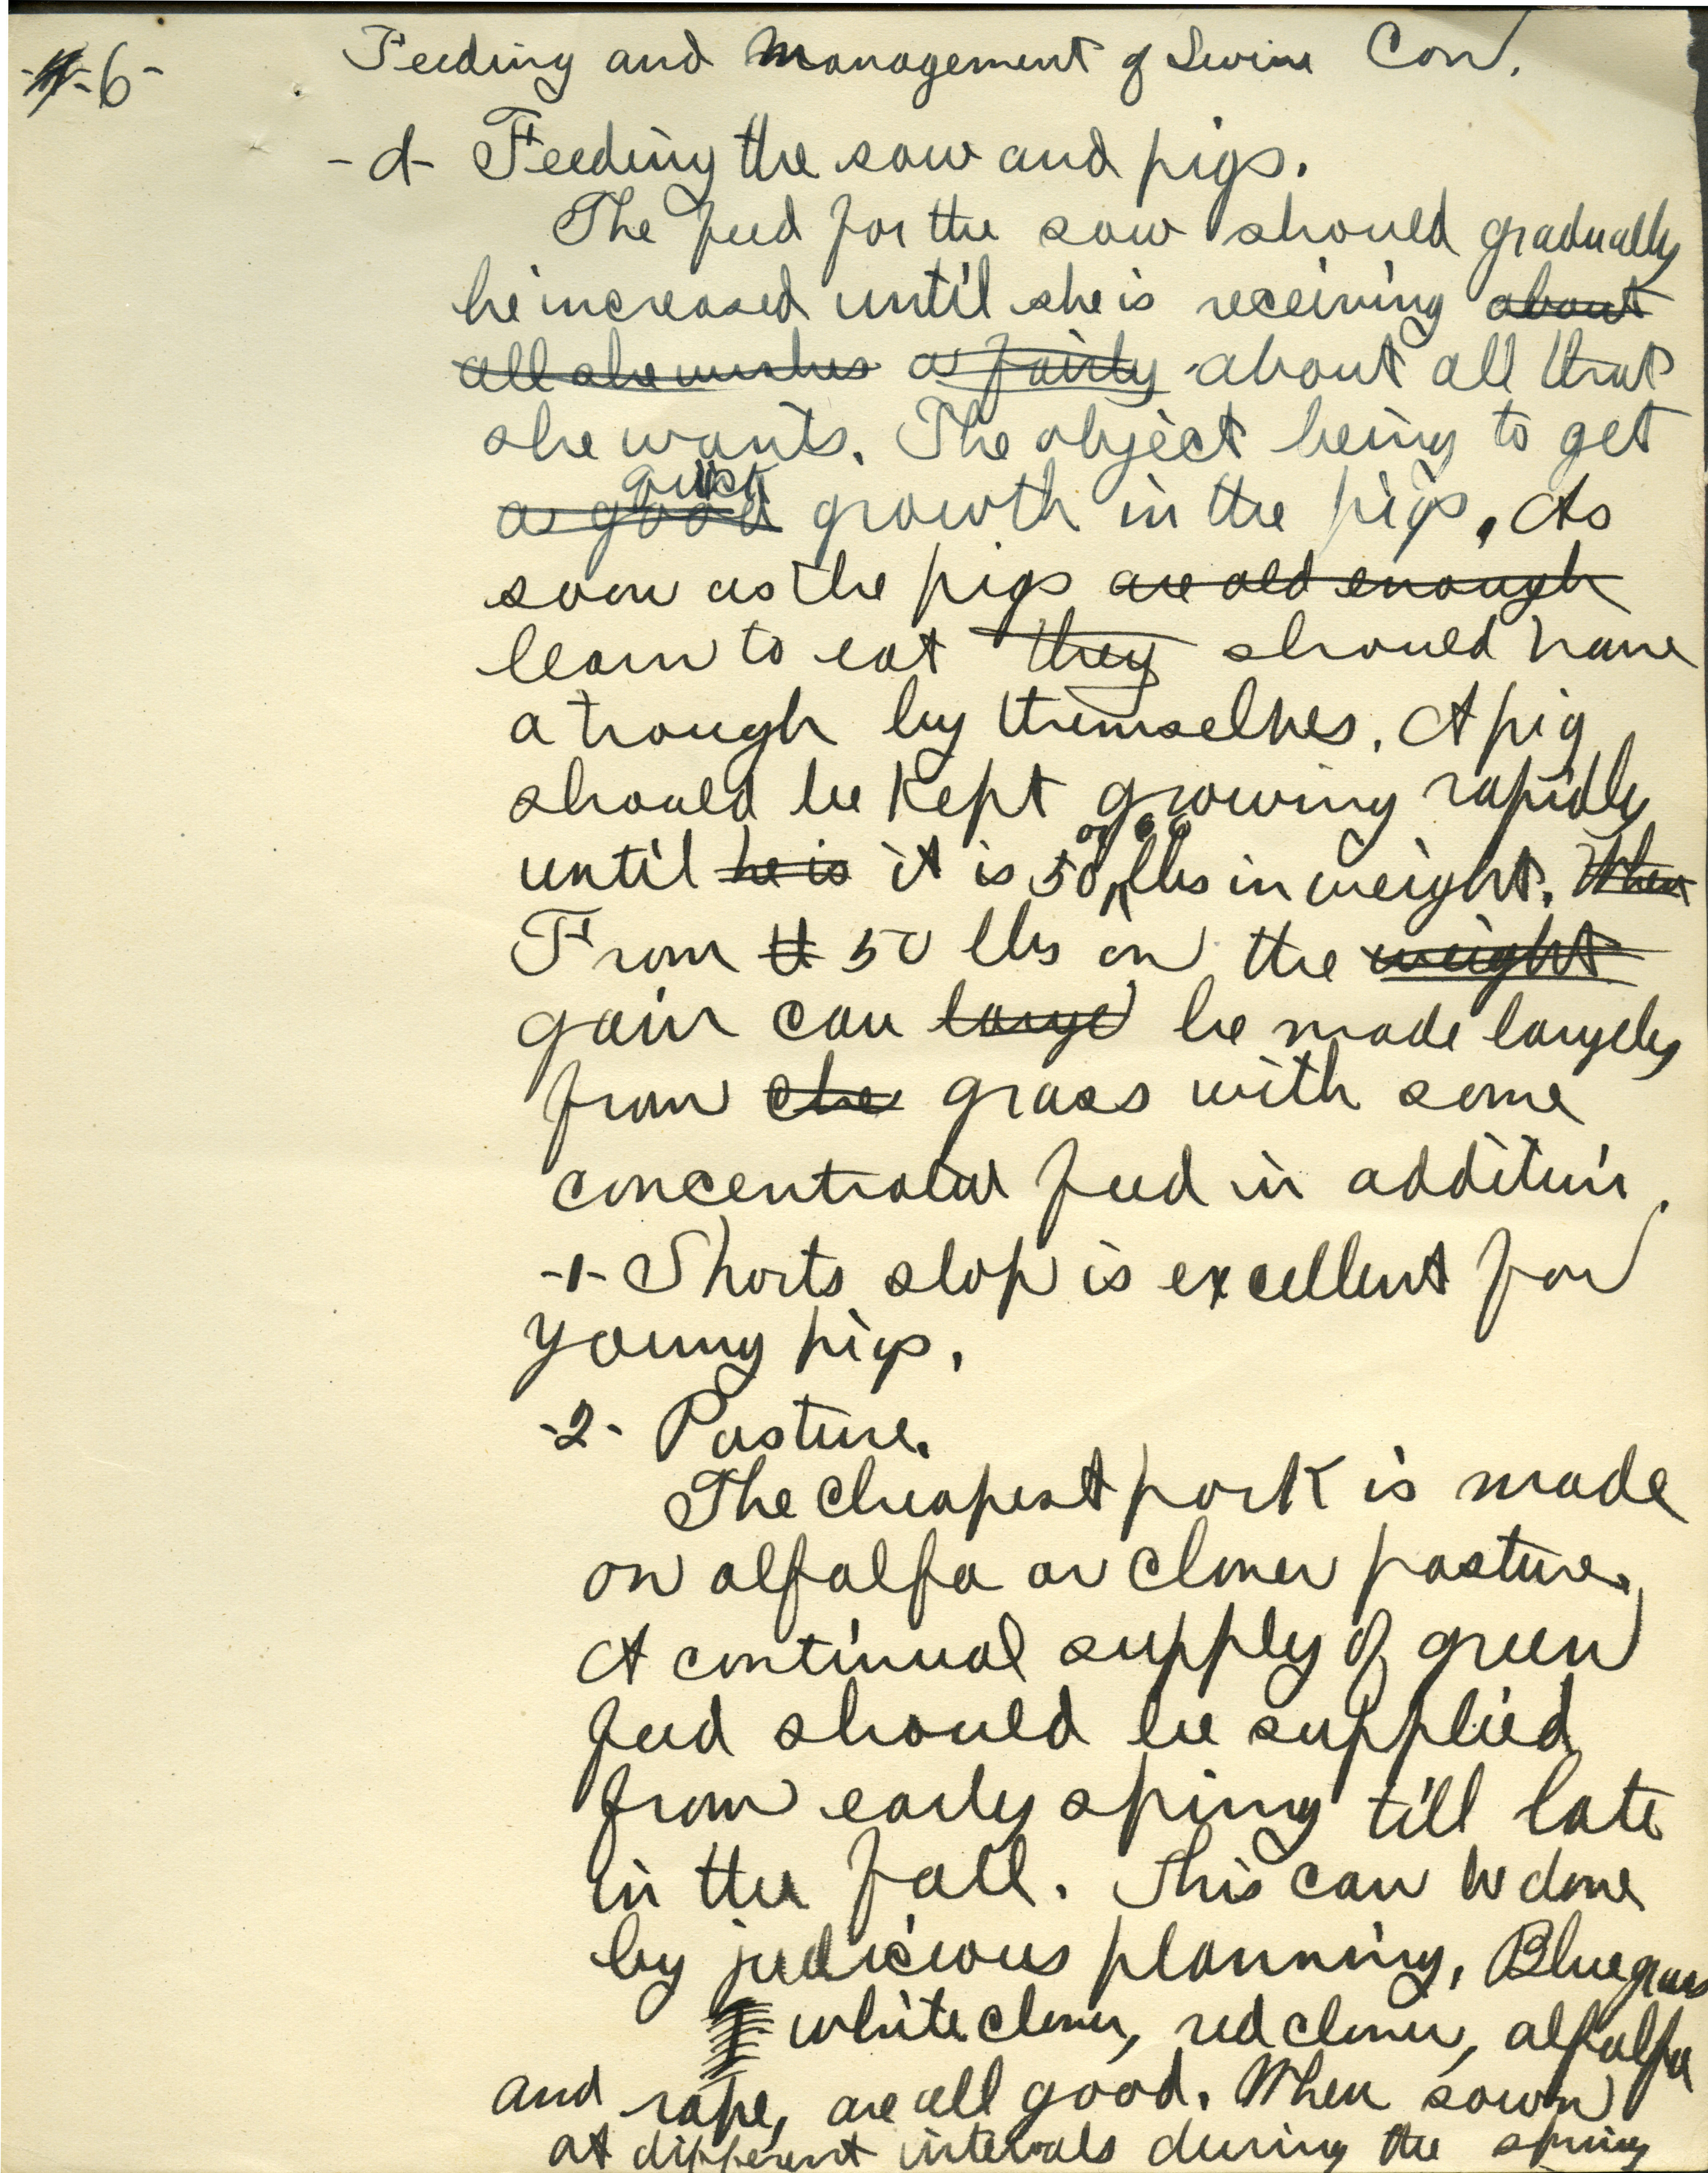 -6- Feeding and Management of Swine Con.
-d- Feeding the sow and pigs.
The feed for the sow should gradually
be increased until she is receiving ~~about~~
~~all she wishes~~ ~~a fairly~~ about all that
she wants. The object being to get
quick
~~a good~~ growth in the pigs. As
soon as the pigs ~~are old enough~~
learn to eat ~~they~~ should have
a trough by themselves. A pig
should be kept growing rapidly
or 60
until ~~he is~~ it is 50 lbs in weight. ~~When~~
From 50 lbs on the ~~weight~~
gain can ~~large~~ be made largely
from ~~che~~ grass with some
concentrated feed in addition.
-1- Shorts slop is excellent for
young pigs.
-2- Pasture.
The cheapest pork is made
on alfalfa or clover pasture.
A continual supply of green
feed should be supplied
from early spring till late
in the fall. This can be done
by judicious planning, Bluegrass
white clover, red clover, alfalfa
and rape, are all good. When sown
at different intervals during the spring